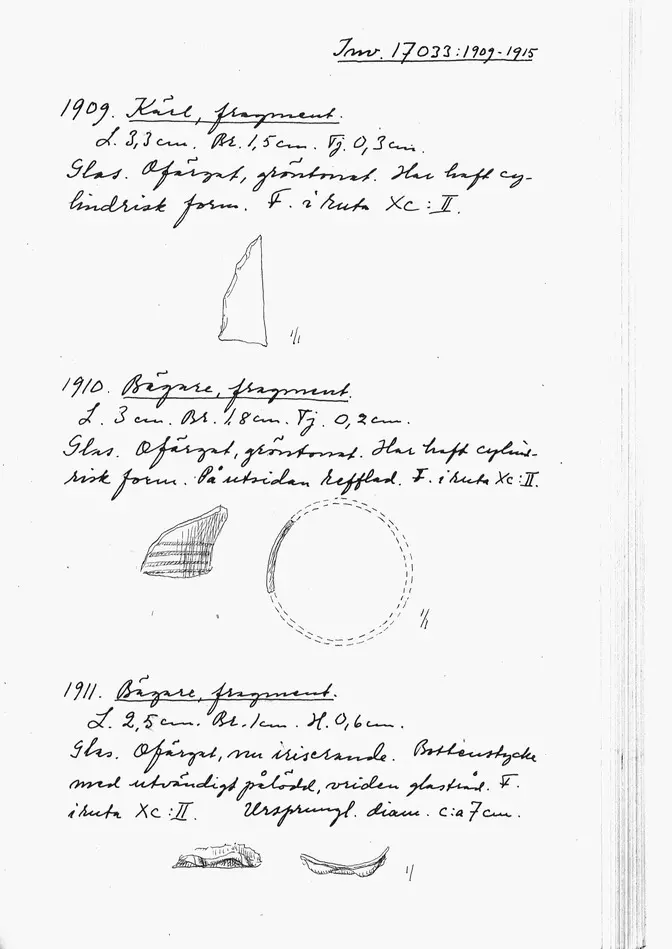 Inv. 17033:1909-1915
1909. Kärl, fragment.
L. 3,3 cm. Br. 1,5 cm. Tj. 0,3 cm.
Glas. Ofärgat, gröntonat. Har haft cy-
lindrisk form. F. i ruta Xc:II.
1/1
1910. Bägare, fragment.
L. 3 cm. Br. 1,8 cm. Tj. 0,2 cm.
Glas. Ofärgat, gröntonat. Har haft cylind-
risk form. På utsidan refflad. F. i ruta Xc:II.
1/1
1911. Bägare, fragment.
L. 2,5 cm. Br. 1 cm. H. 0,6 cm.
Glas. Ofärgat, nu iriserande. Bottenstycke
med utvändigt pålödd, vriden glastråd. F.
i ruta Xc:II. Ursprungl. diam. c:a 7 cm.
1/